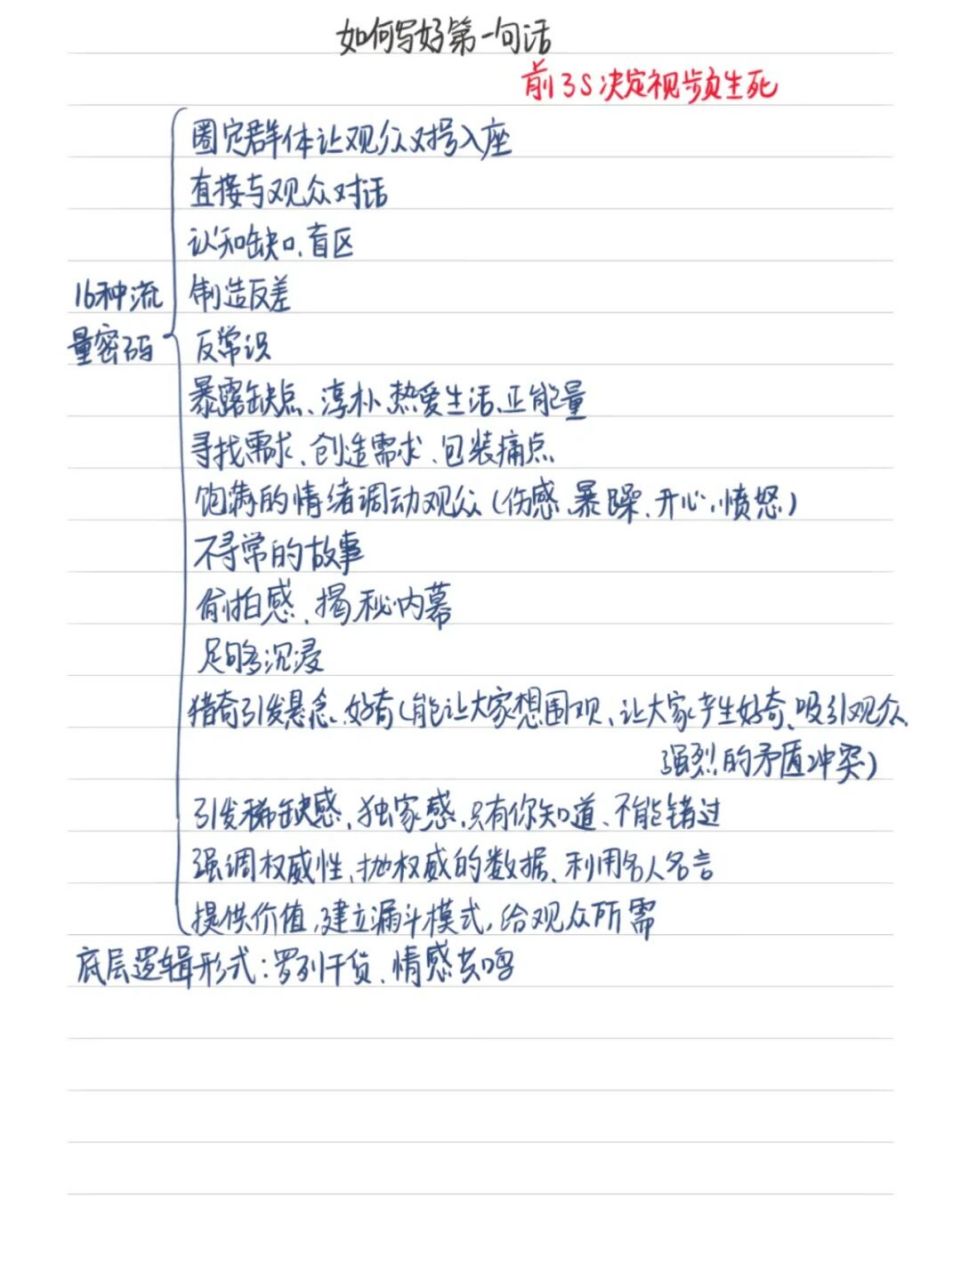 如何写好第一句话
前3S决定视频生死
圈定群体让观众对号入座
直接与观众对话
认知缺口、盲区
16种流
制造反差
量密码
反常识
暴露缺点、淳朴、热爱生活、正能量
寻找需求、创造需求、包装痛点
饱满的情绪调动观众(伤感、暴躁、开心、愤怒)
不寻常的故事
偷拍感、揭秘内幕
足够沉浸
猎奇引发悬念、好奇(能让大家想围观、让大家产生好奇、吸引观众、
强烈的矛盾冲突)
引发稀缺感、独家感、只有你知道、不能错过
强调权威性、抛权威的数据、利用名人名言
提供价值、建立漏斗模式、给观众所需
底层逻辑形式:罗列干货、情感共鸣